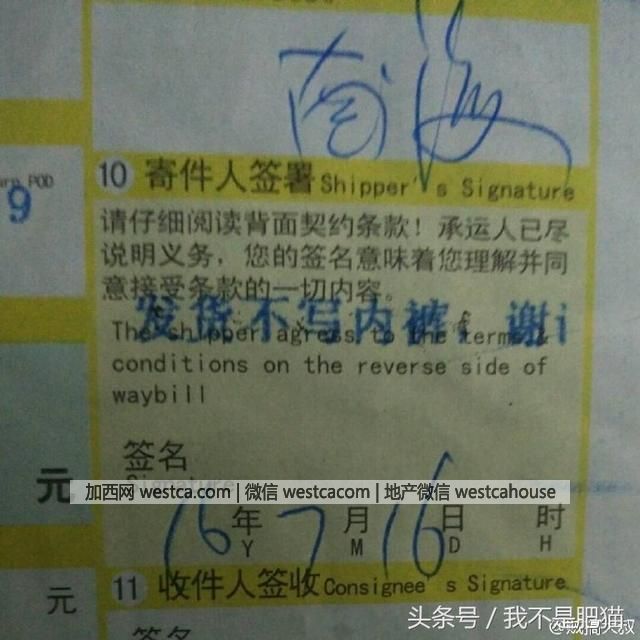 南海
POD
9
10 寄件人签署 Shipper's Signature
请仔细阅读背面契约条款！承运人已尽
说明义务，您的签名意味着您理解并同
意接受条款的一切内容。
发货不写内裤，谢
The shipper agress to the terms &
conditions on the reverse side of
waybill
签名
Signature
元
加西网 westca.com | 微信 westcacom | 地产微信 westcahouse
16 年 7 月 16 日 时
Y M D H
11 收件人签收 Consignee's Signature
元
签名
头条号 / 我不是肥猫